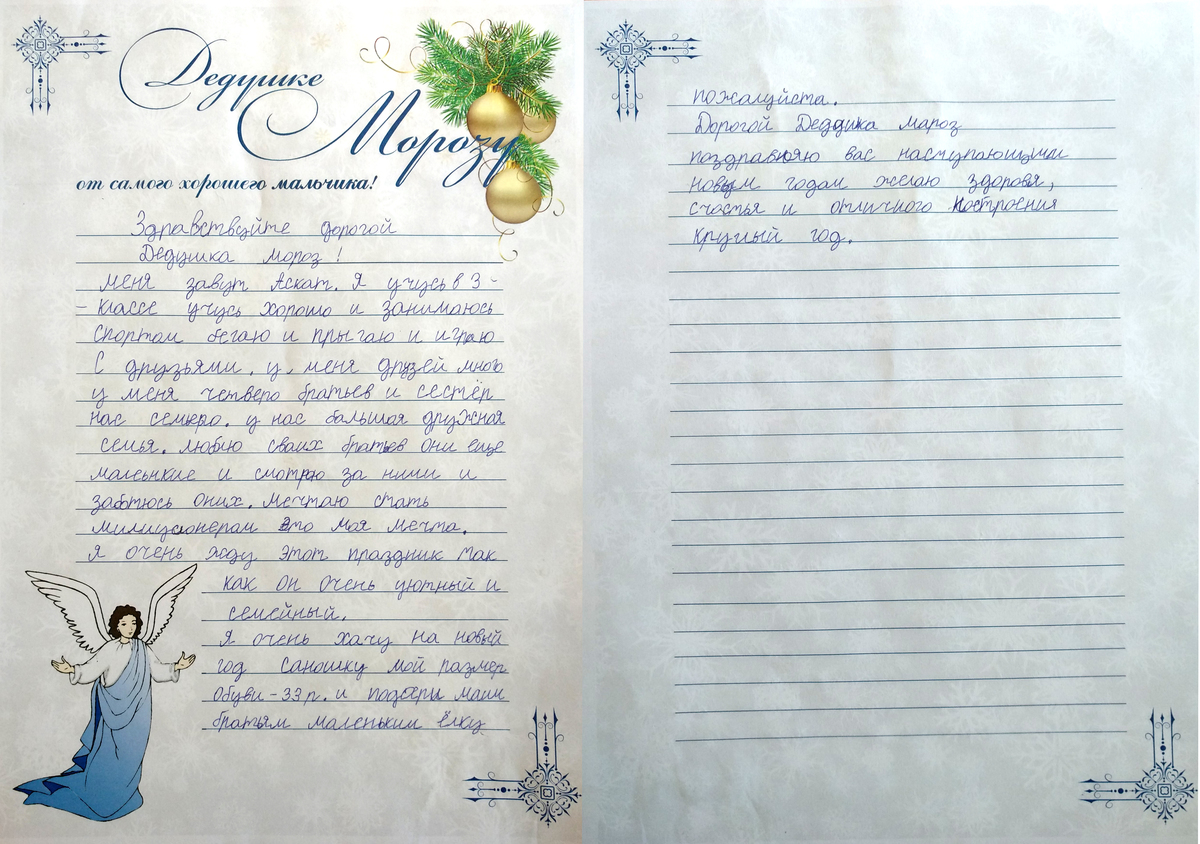 Дедушке
Морозу
от самого хорошего мальчика!
Здравствуйте дорогой
Дедушка мороз!
меня завут Аскат. Я учусь в 3-
- классе учусь хорошо и занимаюсь
спортом бегаю и прыгаю и играю
с друзьями. у меня друзей много
у меня четверо братьев и сестёр
нас семьро. у нас большая дружная
семья. люблю сваих братьев они еще
маленькие и смотрю за ними и
заботюсь оних. мечтаю стать
милиционерам это моя мечта.
я очень жду этот праздник так
как он очень уютный и
семейный.
Я очень хачу на новый
год саношку мой размер
обуви-33р. и подари маим
братьям маленьким ёлку
пожалуйста.
Дорогой Дедушка мароз
поздравляю вас наступающими
новым годам желаю здоровя,
счастья и отличного костроения
круглый год.